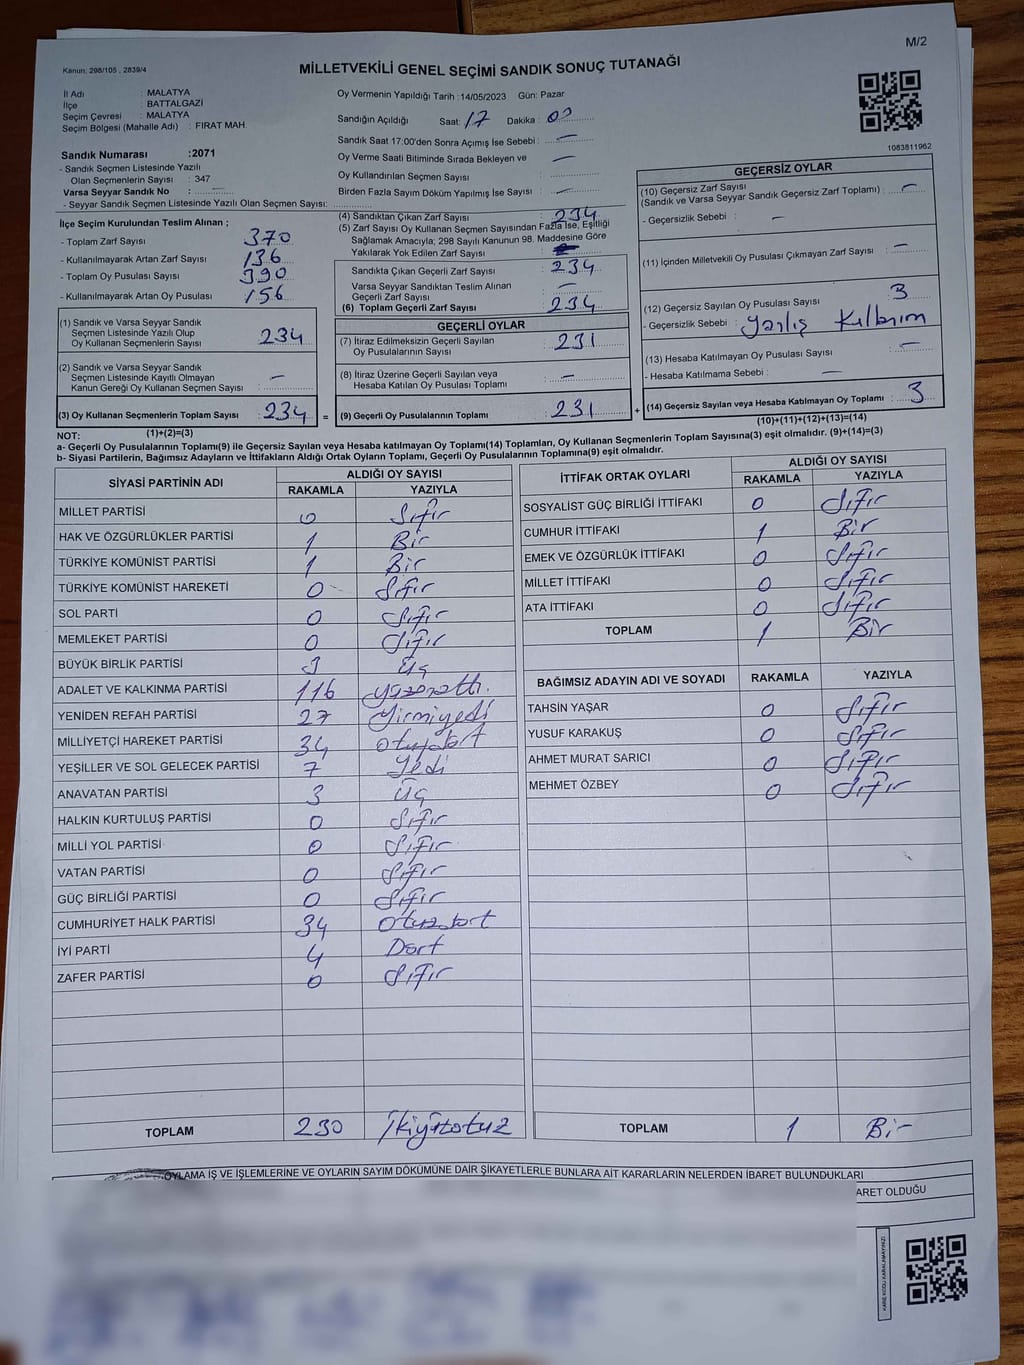 M/2
Kanun: 298/105 , 2839/4
MİLLETVEKİLİ GENEL SEÇİMİ SANDIK SONUÇ TUTANAĞI
İl Adı : MALATYA
İlçe : BATTALGAZİ
Seçim Çevresi : MALATYA
Seçim Bölgesi (Mahalle Adı) : FIRAT MAH.
Sandık Numarası :2071
- Sandık Seçmen Listesinde Yazılı
Olan Seçmenlerin Sayısı : 347
Varsa Seyyar Sandık No :
- Seyyar Sandık Seçmen Listesinde Yazılı Olan Seçmen Sayısı:
Oy Vermenin Yapıldığı Tarih :14/05/2023 Gün: Pazar
Sandığın Açıldığı Saat: 17 Dakika : 00
Sandık Saat 17:00'den Sonra Açımış İse Sebebi : —
Oy Verme Saati Bitiminde Sırada Bekleyen ve —
Oy Kullandırılan Seçmen Sayısı :
Birden Fazla Sayım Döküm Yapılmış İse Sayısı : —
1083811962
İlçe Seçim Kurulundan Teslim Alınan ;
- Toplam Zarf Sayısı : 370
- Kullanılmayarak Artan Zarf Sayısı : 136
- Toplam Oy Pusulası Sayısı : 390
- Kullanılmayarak Artan Oy Pusulası : 156
(1) Sandık ve Varsa Seyyar Sandık
Seçmen Listesinde Yazılı Olup
Oy Kullanan Seçmenlerin Sayısı : 234
(2) Sandık ve Varsa Seyyar Sandık
Seçmen Listesinde Kayıtlı Olmayan
Kanun Gereği Oy Kullanan Seçmen Sayısı : —
(3) Oy Kullanan Seçmenlerin Toplam Sayısı : 234
(1)+(2)=(3)
(4) Sandıktan Çıkan Zarf Sayısı : 234
(5) Zarf Sayısı Oy Kullanan Seçmen Sayısından Fazla İse, Eşitliği
Sağlamak Amacıyla; 298 Sayılı Kanunun 98. Maddesine Göre
Yakılarak Yok Edilen Zarf Sayısı :
Sandıkta Çıkan Geçerli Zarf Sayısı : 234
Varsa Seyyar Sandıktan Teslim Alınan
Geçerli Zarf Sayısı : —
(6) Toplam Geçerli Zarf Sayısı : 234
GEÇERLİ OYLAR
(7) İtiraz Edilmeksizin Geçerli Sayılan
Oy Pusulalarının Sayısı : 231
(8) İtiraz Üzerine Geçerli Sayılan veya
Hesaba Katılan Oy Pusulası Toplamı : —
= (9) Geçerli Oy Pusulalarının Toplamı : 231 +
GEÇERSİZ OYLAR
(10) Geçersiz Zarf Sayısı
(Sandık ve Varsa Seyyar Sandık Geçersiz Zarf Toplamı) : —
- Geçersizlik Sebebi : —
(11) İçinden Milletvekili Oy Pusulası Çıkmayan Zarf Sayısı : —
(12) Geçersiz Sayılan Oy Pusulası Sayısı : 3
- Geçersizlik Sebebi :
(13) Hesaba Katılmayan Oy Pusulası Sayısı : —
- Hesaba Katılmama Sebebi : —
(14) Geçersiz Sayılan veya Hesaba Katılmayan Oy Toplamı : 3
(10)+(11)+(12)+(13)=(14)
NOT:
a- Geçerli Oy Pusulalarının Toplamı(9) ile Geçersiz Sayılan veya Hesaba katılmayan Oy Toplamı(14) Toplamları, Oy Kullanan Seçmenlerin Toplam Sayısına(3) eşit olmalıdır. (9)+(14)=(3)
b- Siyasi Partilerin, Bağımsız Adayların ve İttifakların Aldığı Ortak Oyların Toplamı, Geçerli Oy Pusulalarının Toplamına(9) eşit olmalıdır.
SİYASİ PARTİNİN ADI ALDIĞI OY SAYISI
RAKAMLA YAZIYLA
MİLLET PARTİSİ 0 Sıfır
HAK VE ÖZGÜRLÜKLER PARTİSİ 1 Bir
TÜRKİYE KOMÜNİST PARTİSİ 1 Bir
TÜRKİYE KOMÜNİST HAREKETİ 0 Sıfır
SOL PARTİ 0 Sıfır
MEMLEKET PARTİSİ 0 Sıfır
BÜYÜK BİRLİK PARTİSİ 3 Üç
ADALET VE KALKINMA PARTİSİ 116
YENİDEN REFAH PARTİSİ 27 Yirmiyedi
MİLLİYETÇİ HAREKET PARTİSİ 34 otuzdört
YEŞİLLER VE SOL GELECEK PARTİSİ 7 Yedi
ANAVATAN PARTİSİ 3 Üç
HALKIN KURTULUŞ PARTİSİ 0 Sıfır
MİLLİ YOL PARTİSİ 0 Sıfır
VATAN PARTİSİ 0 Sıfır
GÜÇ BİRLİĞİ PARTİSİ 0 Sıfır
CUMHURİYET HALK PARTİSİ 34 Otuzdört
İYİ PARTİ 4 Dört
ZAFER PARTİSİ 0 Sıfır
TOPLAM 230 İkiyüzotuz
İTTİFAK ORTAK OYLARI ALDIĞI OY SAYISI
RAKAMLA YAZIYLA
SOSYALİST GÜÇ BİRLİĞİ İTTİFAKI 0 Sıfır
CUMHUR İTTİFAKI 1 Bir
EMEK VE ÖZGÜRLÜK İTTİFAKI 0 Sıfır
MİLLET İTTİFAKI 0 Sıfır
ATA İTTİFAKI 0 Sıfır
TOPLAM 1 Bir
BAĞIMSIZ ADAYIN ADI VE SOYADI RAKAMLA YAZIYLA
TAHSİN YAŞAR 0 Sıfır
YUSUF KARAKUŞ 0 Sıfır
AHMET MURAT SARICI 0 Sıfır
MEHMET ÖZBEY 0 Sıfır
TOPLAM 1 Bir
OYLAMA İŞ VE İŞLEMLERİNE VE OYLARIN SAYIM DÖKÜMÜNE DAİR ŞİKAYETLERLE BUNLARA AİT KARARLARIN NELERDEN İBARET BULUNDUKLARI
ARET OLDUĞU
KARE KODU KARALAMAYINIZ!